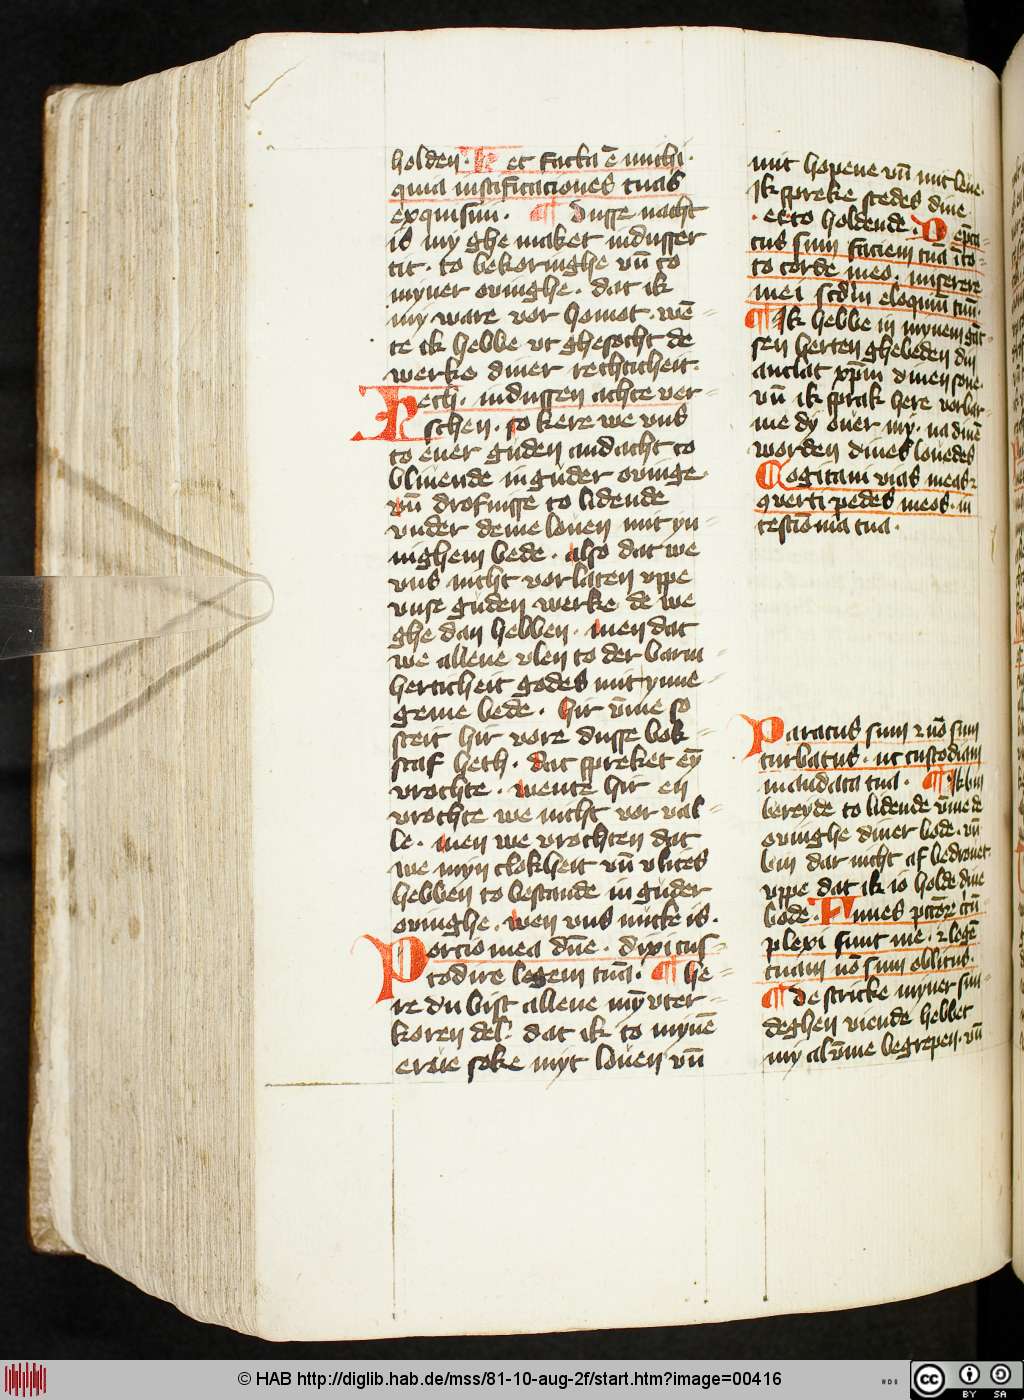 holden · Hec facta ē michi ·
quia iustificaciones tuas
exquisiui · ¶ Dusse nacht
is my ghe maket in dusser
tit · to bekoringhe vn̄ to
myner ouinghe · dat ik
my ware vor homot · wē-
te ik hebbe vt ghesocht de
werke diner rechticheit ·
Hech · in dussen achte ver-
schen · so kere we vns
to ener guden andacht to
bliuende in guder ouinge ·
vn̄ drofnisse to lidende
vnder deme louen mit yn-
nighem bede · also dat we
vns nicht vorlaten vppe
vnse guden werke de we
ghe dan hebben · men dat
we allene vlen to der barm-
herticheit godes mit ynne-
geme bede · hir v̄me so
steit hir vore dusse bok-
staf heth · dat spreket eȳ
vrochte · wente hir en
vrochte we nicht vor val-
le · men we vrochten dat
we myn clokheit vn̄ vlites
hebben to bestande in guder
ouinghe · wen vns nutte is ·
Porcio mea dn̄e · dixi cus-
todire legem tuā · ¶ he-
re du bist allene mȳ vter-
koren del · dat ik to mynē
erue soke myt louen vn̄
mit hopene vn̄ mit leue ·
ik spreke stedes dine
· e to holdende · Depca-
tus sum faciem tuā ī to-
to corde meo · miserere
mei scdm eloquiū tuū ·
¶ Ik hebbe in mynem gāt-
sen herten ghebeden din
antlat xp̄m dinen sone ·
vn̄ ik sprak here vorbar-
me dy ouer my · na dinē
worden dines louedes
Cogitaui vias meas ⁊
9uerti pedes meos · in
testiōnia tua ·
Paratus sum ⁊ nō sum
turbatus · ut custodiam
mandata tua · ¶ Ik bin
bereyde to lidende v̄me de
ouinghe diner bode · vn̄
bin dar nicht af bedrouet
vppe dat ik io holde dine
bode · Funes pctōrū cū-
plexi sunt me · ⁊ legē
tuam nō sum oblitus ·
¶ De stricke myner sun-
deghen viende hebbet
my al v̄me begrepen · vn̄
© HAB http://diglib.hab.de/mss/81-10-aug-2f/start.htm?image=00416
cc
BY SA